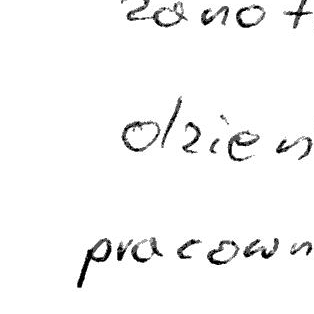 zano
dzien
pracown